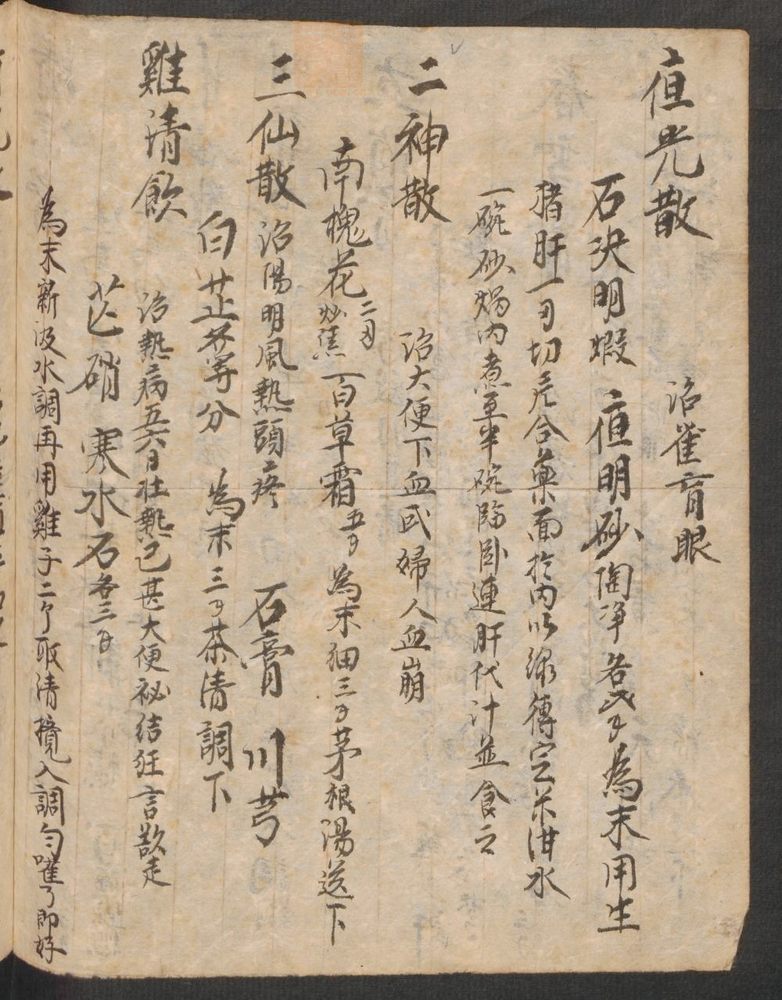 夜光散
治雀盲眼
石決明煅 夜明砂淘净各弍錢為末用生
猪肝一両切片合藥面於内以線縛定米泔水
一碗砂煱内煮至半碗臨卧連肝代汁並食之
二神散 治大便下血或婦人血崩
南槐花二両炒焦 百草霜五錢為末細三錢茅根湯送下
三仙散 治陽明風熱頭疼 石膏 川芎
白芷各等分 為末三錢茶清調下
雞清飲 治熱病五六日壮熱已甚大便祕结狂言欲走
芒硝 寒水石各三錢
為末新汲水調再用雞子二个取清攪入調匀嚾了即好